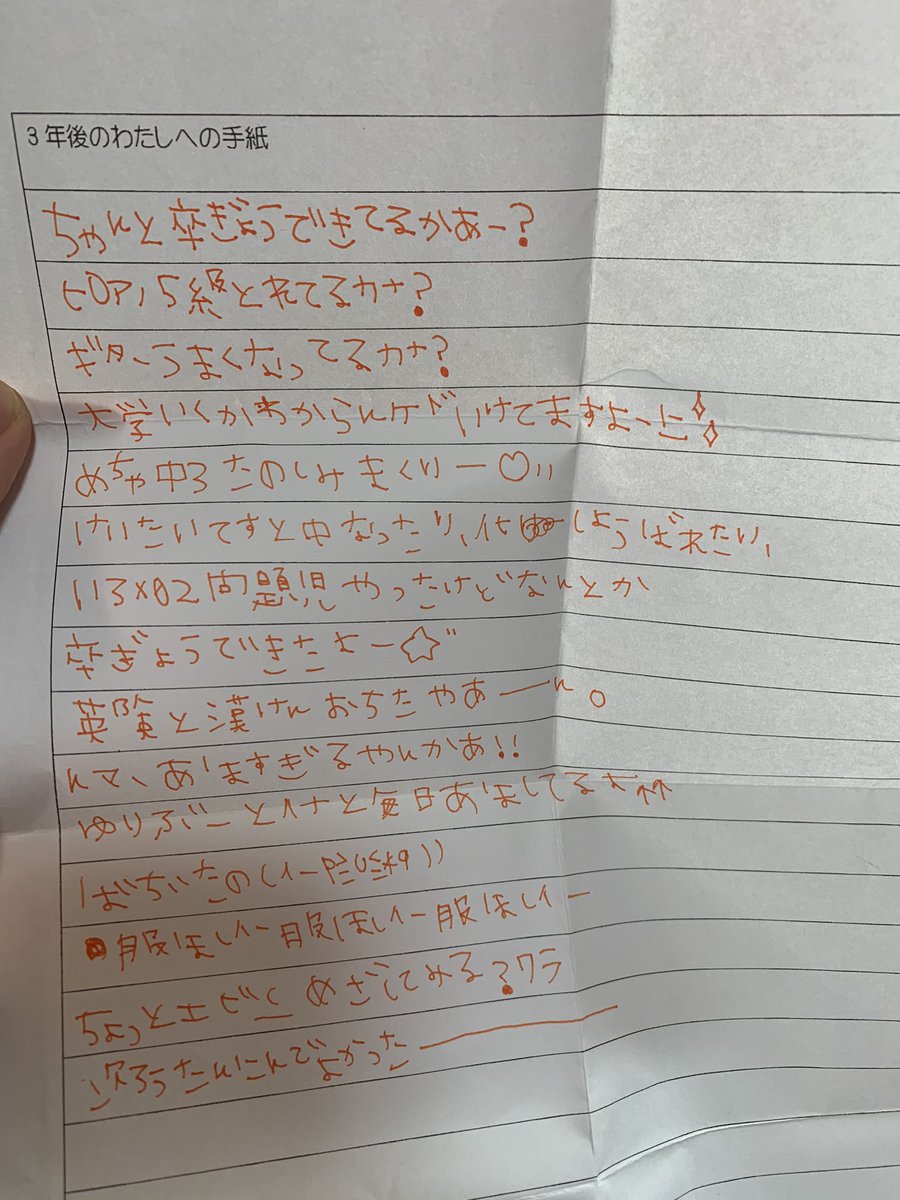 3年後のわたしへの手紙
ちゃんと卒ぎょうできてるかあー?
ピアノ5級とれてるカナ?
ギターうまくなってるカナ?
大学いくかわからんケドいけてますよーに
めちゃ中3たのしみまくりー♡
けいたいてすと中なったり、しようばれたり、
いろ×02問題児やったけどなんとか
卒ぎょうできたよー☆
英険と漢けんおちたやあーん。
んマ、あしますぎるやんかあ!!
ゆりぶーとイナと毎日あましてるナ
ばちいたの
服ほしいー服ほしイー服ほしイー
ちょっとエビ めざしてみる?ワラ
たんにんでよかったー